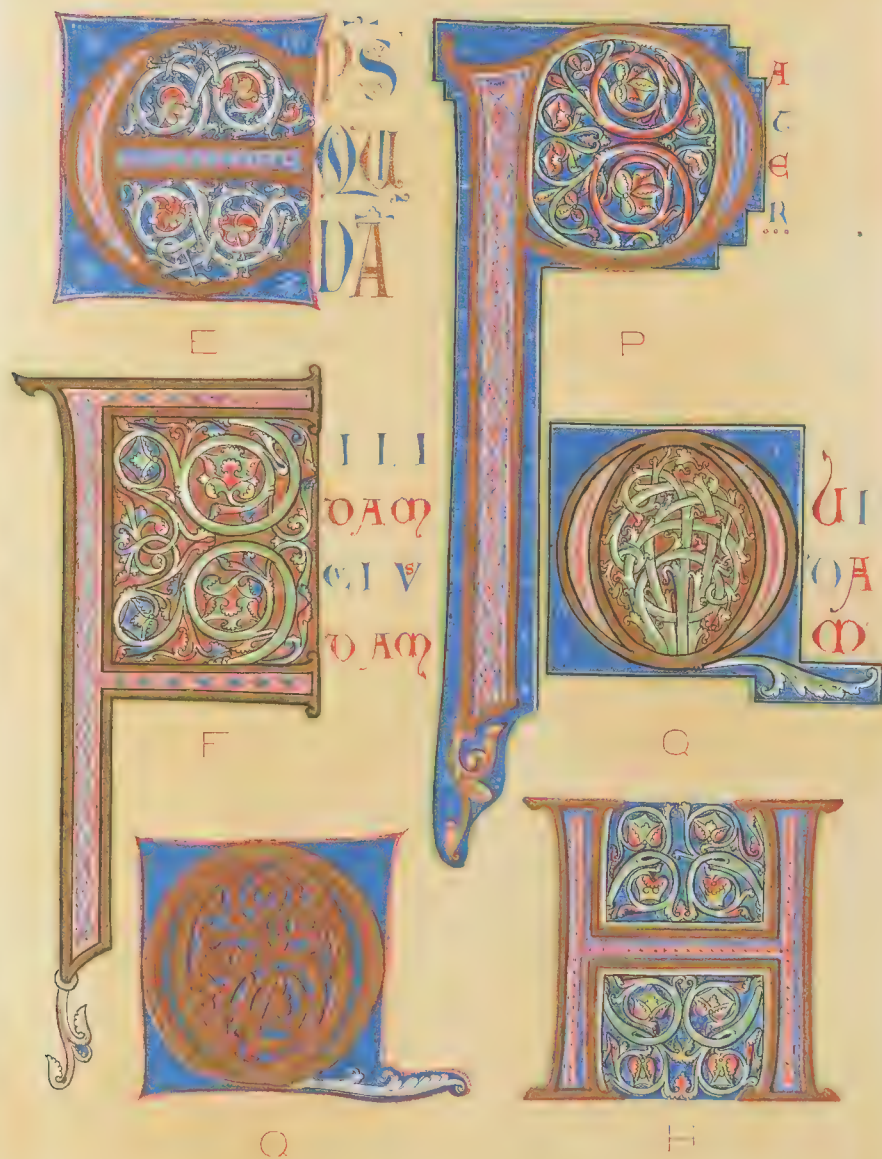 E PS
QU
DA
E
P
A
T
E
R
P
F I L I
DAM
EIVS
DAM
F
Q UI
DA
M
Q
Q
H
H